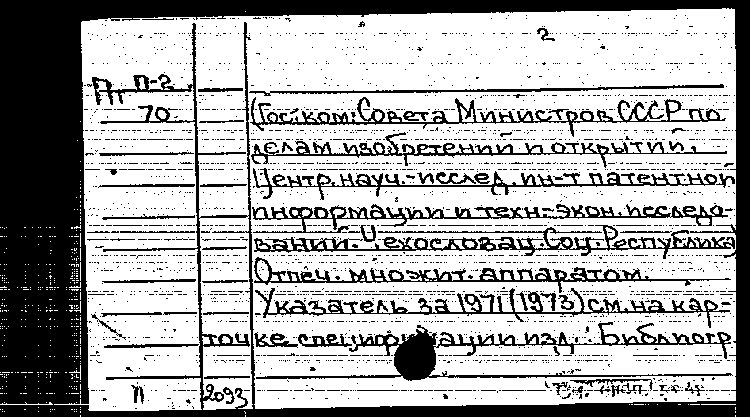 2
Пт П-2
70
(Гос. ком. Совета Министров СССР по
делам изобретений и открытий.
Центр. науч.-исслед. ин-т патентной
информации и техн.-экон. исследо-
ваний. Чехословац. Соц. Республика)
Отпеч. множит. аппаратом.
Указатель за 1971 (1973) см. на кар-
точке спецификации изд.: Библиогр.
п 2093